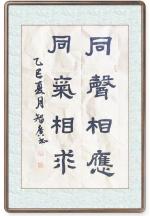 同聲相應
同氣相求
乙巳夏月